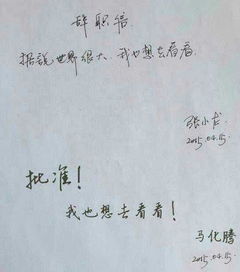 辞职信
据说世界很大,我也想去看看.
张小龙
2015.04.15
批准!
我也想去看看!
马化腾
2015.04.15.